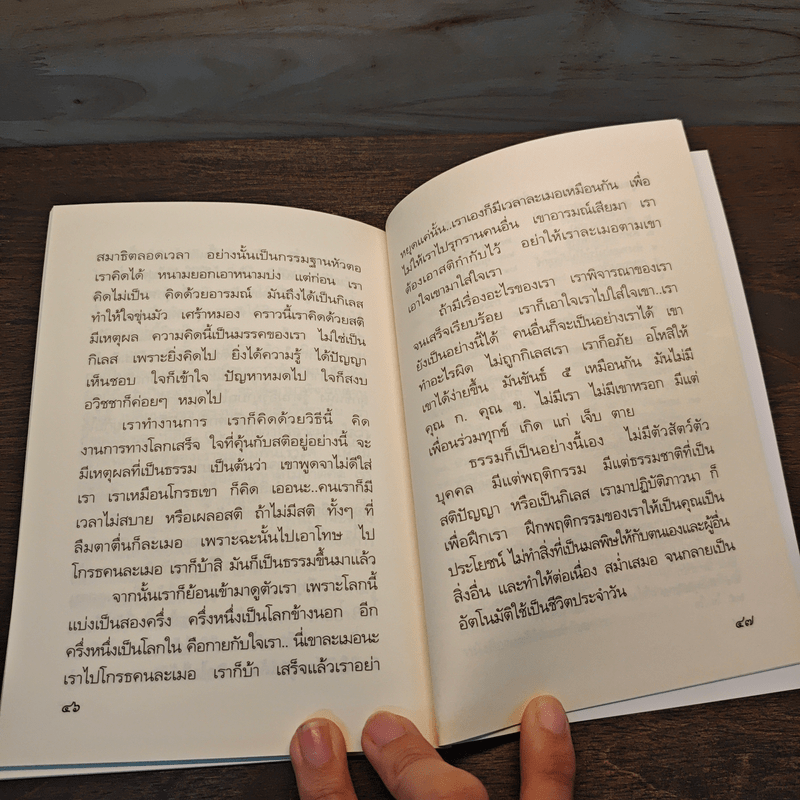 สมาธิตลอดเวลา อย่างนั้นเป็นกรรมฐานหัวตอ
เราคิดได้ หนามยอกเอาหนามบ่ง แต่ก่อน เรา
คิดไม่เป็น คิดด้วยอารมณ์ มันถึงได้เป็นกิเลส
ทำให้ใจขุ่นมัว เศร้าหมอง คราวนี้เราคิดด้วยสติ
มีเหตุผล ความคิดนี้เป็นมรรคของเรา ไม่ใช่เป็น
กิเลส เพราะยิ่งคิดไป ยิ่งได้ความรู้ ได้ปัญญา
เห็นชอบ ใจก็เข้าใจ ปัญหาหมดไป ใจก็สงบ
อวิชชาก็ค่อยๆ หมดไป
เราทำงานการ เราก็คิดด้วยวิธีนี้ คิด
งานการทางโลกเสร็จ ใจที่คุ้นกับสติอยู่อย่างนี้ จะ
มีเหตุผลที่เป็นธรรม เป็นต้นว่า เขาพูดจาไม่ดีใส่
เรา เราเหมือนโกรธเขา ก็คิด เออนะ..คนเราก็มี
เวลาไม่สบาย หรือเผลอสติ ถ้าไม่มีสติ ทั้งๆ ที่
ลืมตาตื่นก็ละเมอ เพราะฉะนั้นไปเอาโทษ ไป
โกรธคนละเมอ เราก็บ้าสิ มันก็เป็นธรรมขึ้นมาแล้ว
จากนั้นเราก็ย้อนเข้ามาดูตัวเรา เพราะโลกนี้
แบ่งเป็นสองครึ่ง ครึ่งหนึ่งเป็นโลกข้างนอก อีก
ครึ่งหนึ่งเป็นโลกใน คือกายกับใจเรา.. นี่เขาละเมอนะ
เราไปโกรธคนละเมอ เราก็บ้า เสร็จแล้วเราอย่า
๔๖
หยุดแค่นั้น..เราเองก็มีเวลาละเมอเหมือนกัน เพื่อ
ไม่ให้เราไปรุกรานคนอื่น เขาอารมณ์เสียมา เรา
ต้องเอาสติกำกับไว้ อย่าให้เราละเมอตามเขา
เอาใจเขามาใส่ใจเรา
ถ้ามีเรื่องอะไรของเรา เราพิจารณาของเรา
จนเสร็จเรียบร้อย เราก็เอาใจเราไปใส่ใจเขา..เรา
ยังเป็นอย่างนี้ได้ คนอื่นก็จะเป็นอย่างเราได้ เขา
ทำอะไรผิด ไม่ถูกกิเลสเรา เราก็อภัย อโหสิให้
เขาได้ง่ายขึ้น มันขันธ์ ๕ เหมือนกัน มันไม่มี
คุณ ก. คุณ ข. ไม่มีเรา ไม่มีเขาหรอก มีแต่
เพื่อนร่วมทุกข์ เกิด แก่ เจ็บ ตาย
ธรรมก็เป็นอย่างนี้เอง ไม่มีตัวสัตว์ตัว
บุคคล มีแต่พฤติกรรม มีแต่ธรรมชาติที่เป็น
สติปัญญา หรือเป็นกิเลส เรามาปฏิบัติภาวนา ก็
เพื่อฝึกเรา ฝึกพฤติกรรมของเราให้เป็นคุณเป็น
ประโยชน์ ไม่ทำสิ่งที่เป็นมลพิษให้กับตนเองและผู้อื่น
สิ่งอื่น และทำให้ต่อเนื่อง สม่ำเสมอ จนกลายเป็น
อัตโนมัติใช้เป็นชีวิตประจำวัน
๔๗